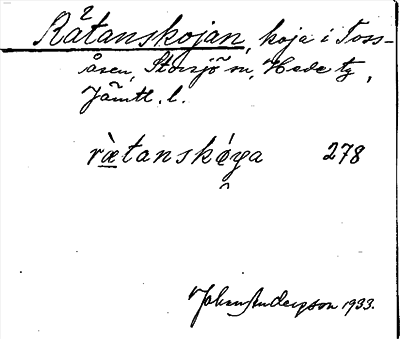 Rätanskojan, koja i Toss-
åsen, Storsjö sn, Hede tg,
Jämtl. l.
ræ̀tanskǿya 278
Johan Anderzson 1933.